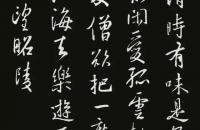 清時有味是
閒愛孤雲
愛僧欲把一麾
海去樂遊
望昭陵